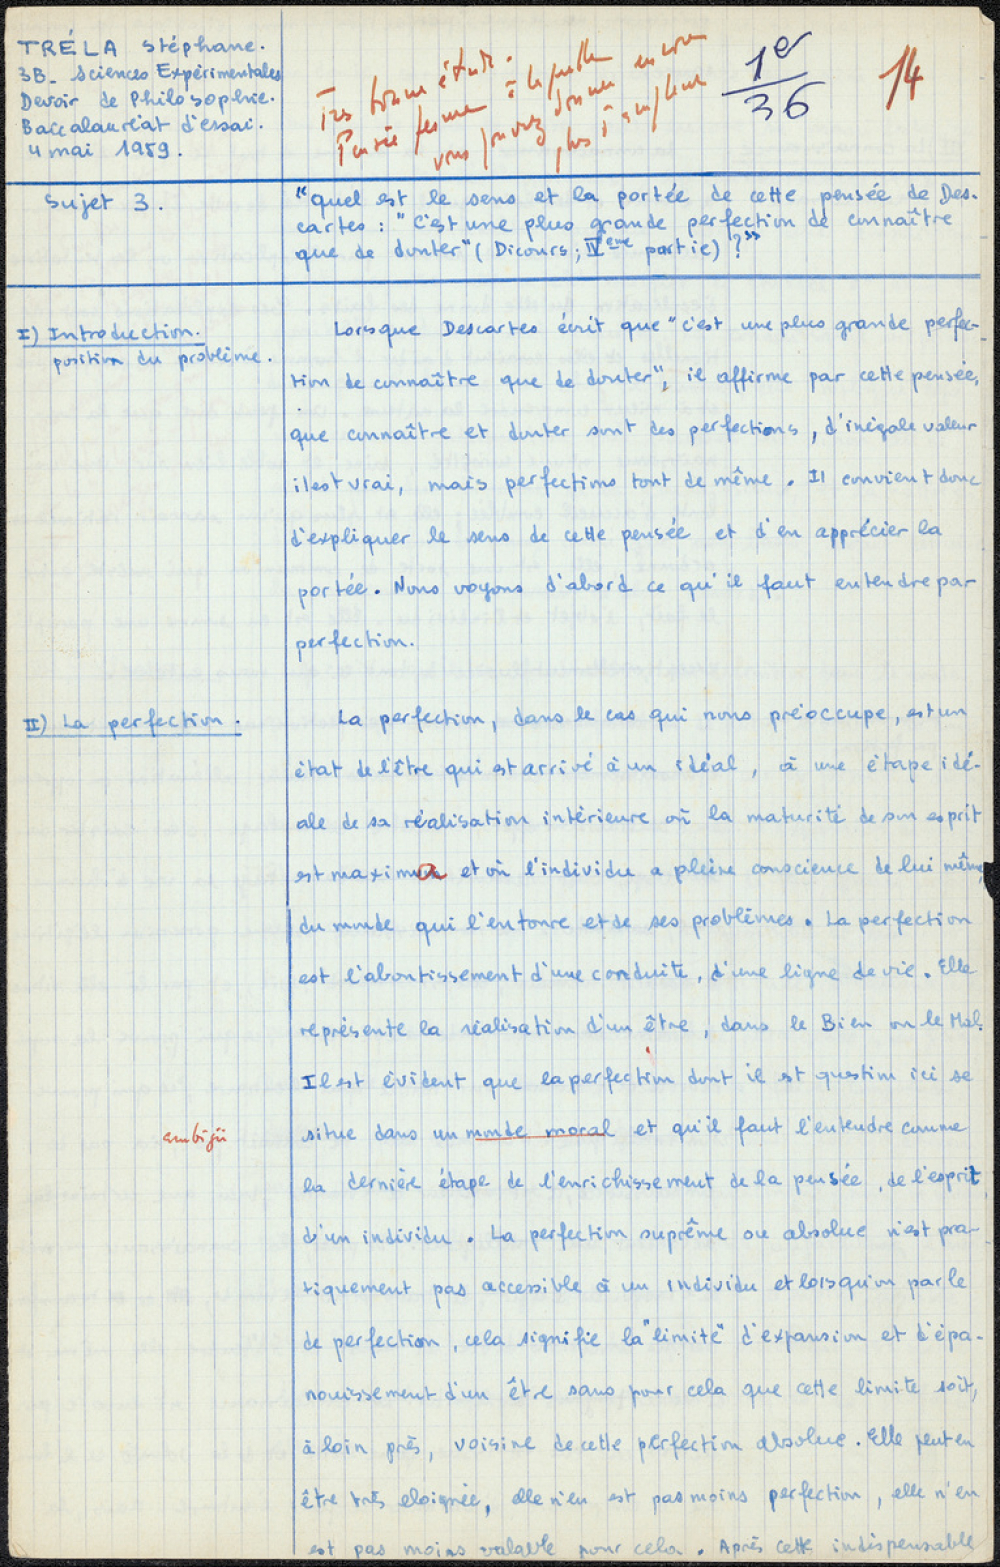 TRÉLA Stéphane.
3B_ Sciences Expérimentales
Devoir de Philosophie.
Baccalauréat d'essai.
4 mai 1959.
Très bonne étude.
Pensée ferme à laquelle
vous pouvez donner encore
plus d'ampleur
1er
36
14
Sujet 3.
"quel est le sens et la portée de cette pensée de Des-
cartes : "C'est une plus grande perfection de connaître
que de douter" ( Dicours ; IVème partie) ?"
I) Introduction.
position du problème.
Lorsque Descartes écrit que "c'est une plus grande perfec-
tion de connaître que de douter", il affirme par cette pensée,
que connaître et douter sont des perfections, d'inégale valeur
il est vrai, mais perfections tout de même. Il convient donc
d'expliquer le sens de cette pensée et d'en apprécier la
portée. Nous voyons d'abord ce qu'il faut entendre par
perfection.
II) La perfection.
La perfection, dans le cas qui nous préoccupe, est un
état de l'être qui est arrivé à un idéal, à une étape idé-
ale de sa réalisation intérieure où la maturité de son esprit
est maxima et où l'individu a pleine conscience de lui même,
du monde qui l'entoure et de ses problèmes. La perfection
est l'aboutissement d'une conduite, d'une ligne de vie. Elle
représente la réalisation d'un être, dans le Bien ou le Mal.
Il est évident que la perfection dont il est question ici se
ambigü
situe dans un monde moral et qu'il faut l'entendre comme
la dernière étape de l'enrichissement de la pensée, de l'esprit
d'un individu. La perfection suprême ou absolue n'est pra-
tiquement pas accessible à un individu et lorsqu'on parle
de perfection, cela signifie la "limite" d'expansion et d'épa-
nouissement d'un être sans pour cela que cette limite soit,
à loin près, voisine de cette perfection absolue. Elle peut en
être très eloignée, elle n'en est pas moins perfection, elle n'en
est pas moins valable pour cela. Après cette indispensable